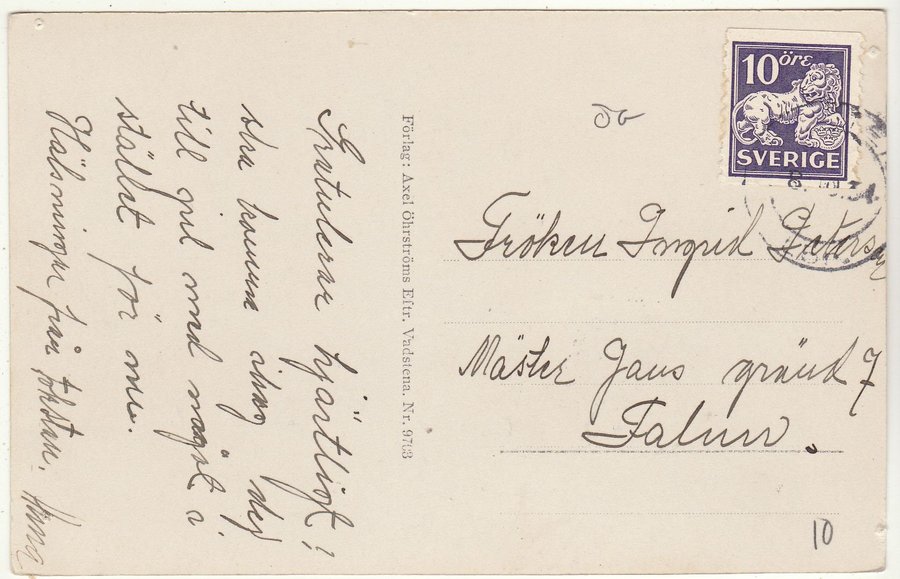 Gratulerar hjärtligt!
ska komma ihåg dej
till jul med något i
stället för nu.
Hälsningar från
Anna
Förlag: Axel Öhrströms Eftr. Vadstena. Nr. 9703
10 öre
SVERIGE
Fröken Ingrid
Mäster Jans gränd 7
Falun.
10